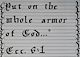 Put on the
whole armor
of God..."
Ecc. 6:1